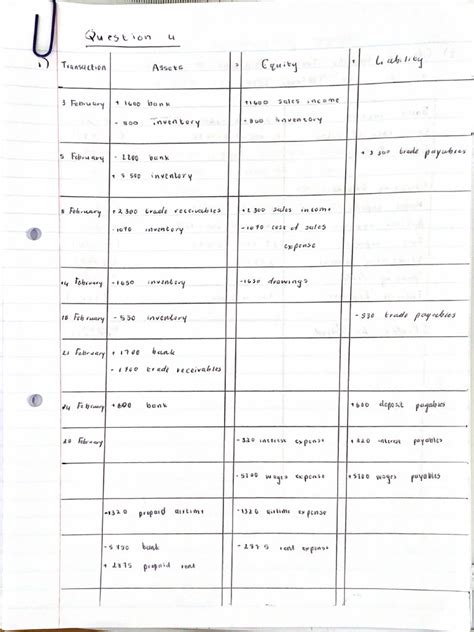 Question 4
1) Transaction Assets = Equity + Liability
3 February +1600 bank +1600 sales income
- 800 inventory - 800 inventory
5 February - 2200 bank + 3 500 trade payables
+ 5 500 inventory
8 February +2 300 trade receivables +2 300 sales income
-1090 inventory -1090 cost of sales
expense
14 February -1650 inventory -1650 drawings
18 February - 530 inventory -530 trade payables
21 February + 1700 bank
- 1700 trade receivables
24 February +600 bank +600 deposit payables
28 February -320 interest expense +320 interest payables
-5700 wages expense +5700 wages payables
-1320 prepaid airtime -1320 airtime expense
- 5750 bank - 2875 rent expense
+ 2875 prepaid rent